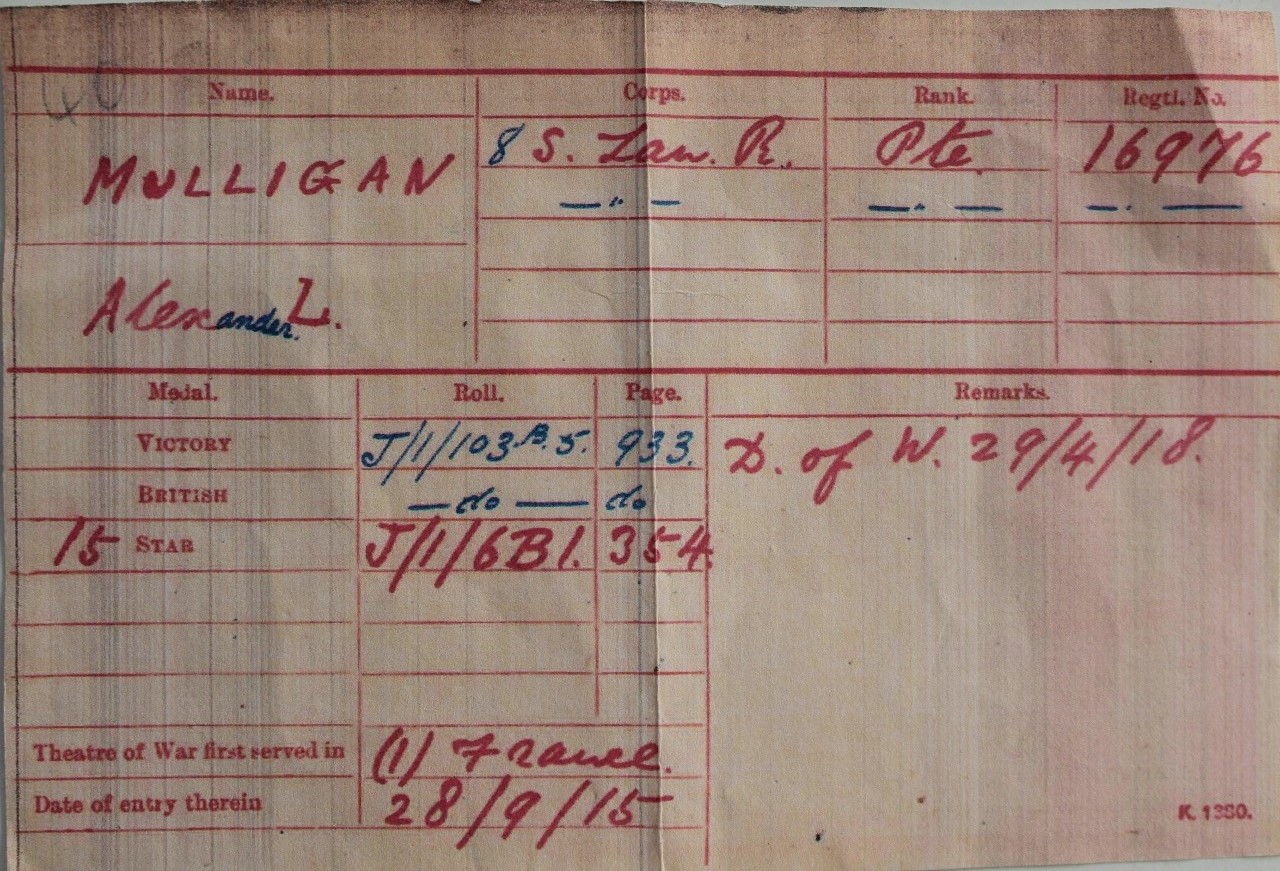 Name. Corps. Rank. Regtl. No.
MULLIGAN 8 S. Lan. R. Pte. 16976
—"— —"— —"—
Alexander L.
Medal. Roll. Page. Remarks.
VICTORY J/1/103.B.5. 933. D. of W. 29/4/18.
BRITISH —do— do
15 STAR J/1/6B1. 354.
Theatre of War first served in (1) France.
Date of entry therein 28/9/15
K. 1380.